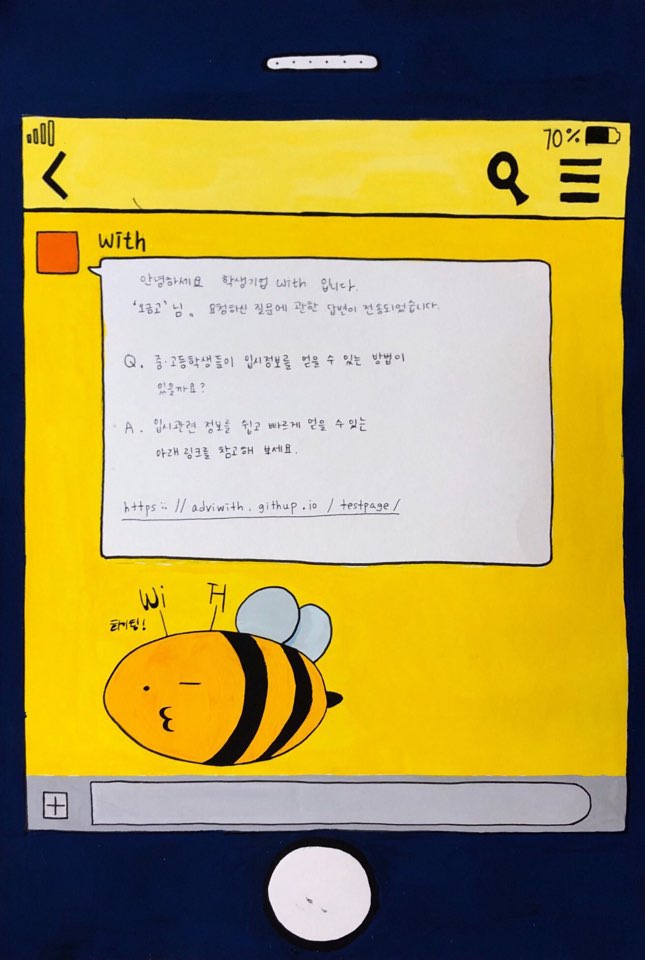 70%
with
안녕하세요 학생기업 with 입니다.
'요금고' 님。 요청하신 질문에 관한 답변이 전송되었습니다.
Q. 중·고등학생들이 입시정보를 얻을 수 있는 방법이
있을까요?
A. 입시관련 정보를 쉽고 빠르게 얻을 수 있는
아래 링크를 참고해 보세요.
https :: // adviwith. githup.io / testpage/
Wi
화이팅!